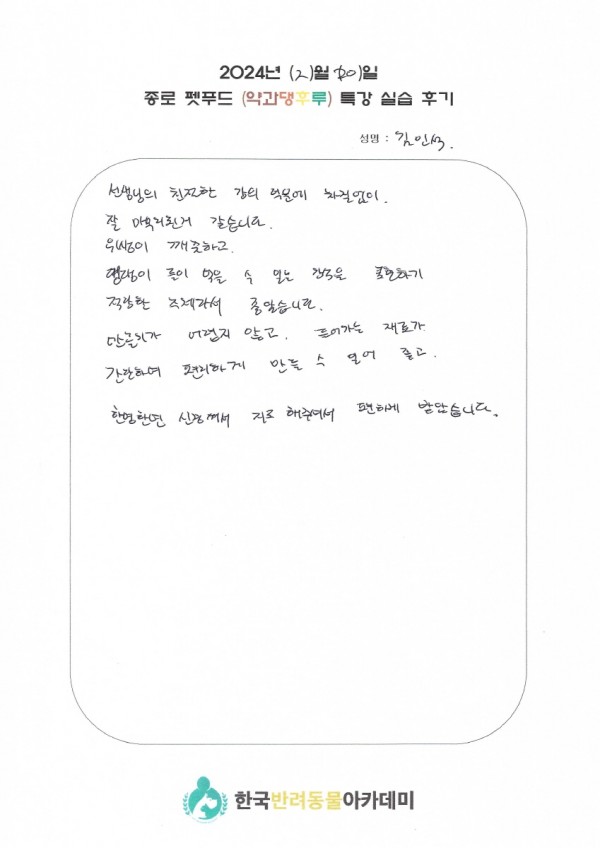 2024년 (2)월 (20)일
종로 펫푸드 (약과댕후루) 특강 실습 후기
성명 : 김인석.
선생님의 친절한 강의 덕분에 차질없이.
잘 마무리된거 같습니다.
위생이 깨끗하고.
이 먹을 수 있는 간식을
적당한 주제라서 좋았습니다.
만들기가 어렵지 않고. 들어가는 재료가
간단하며 편리하게 만들 수 있어 좋고.
한명한명 신경써서 지도 해주셔서 편하게 받았습니다.
한국반려동물아카데미